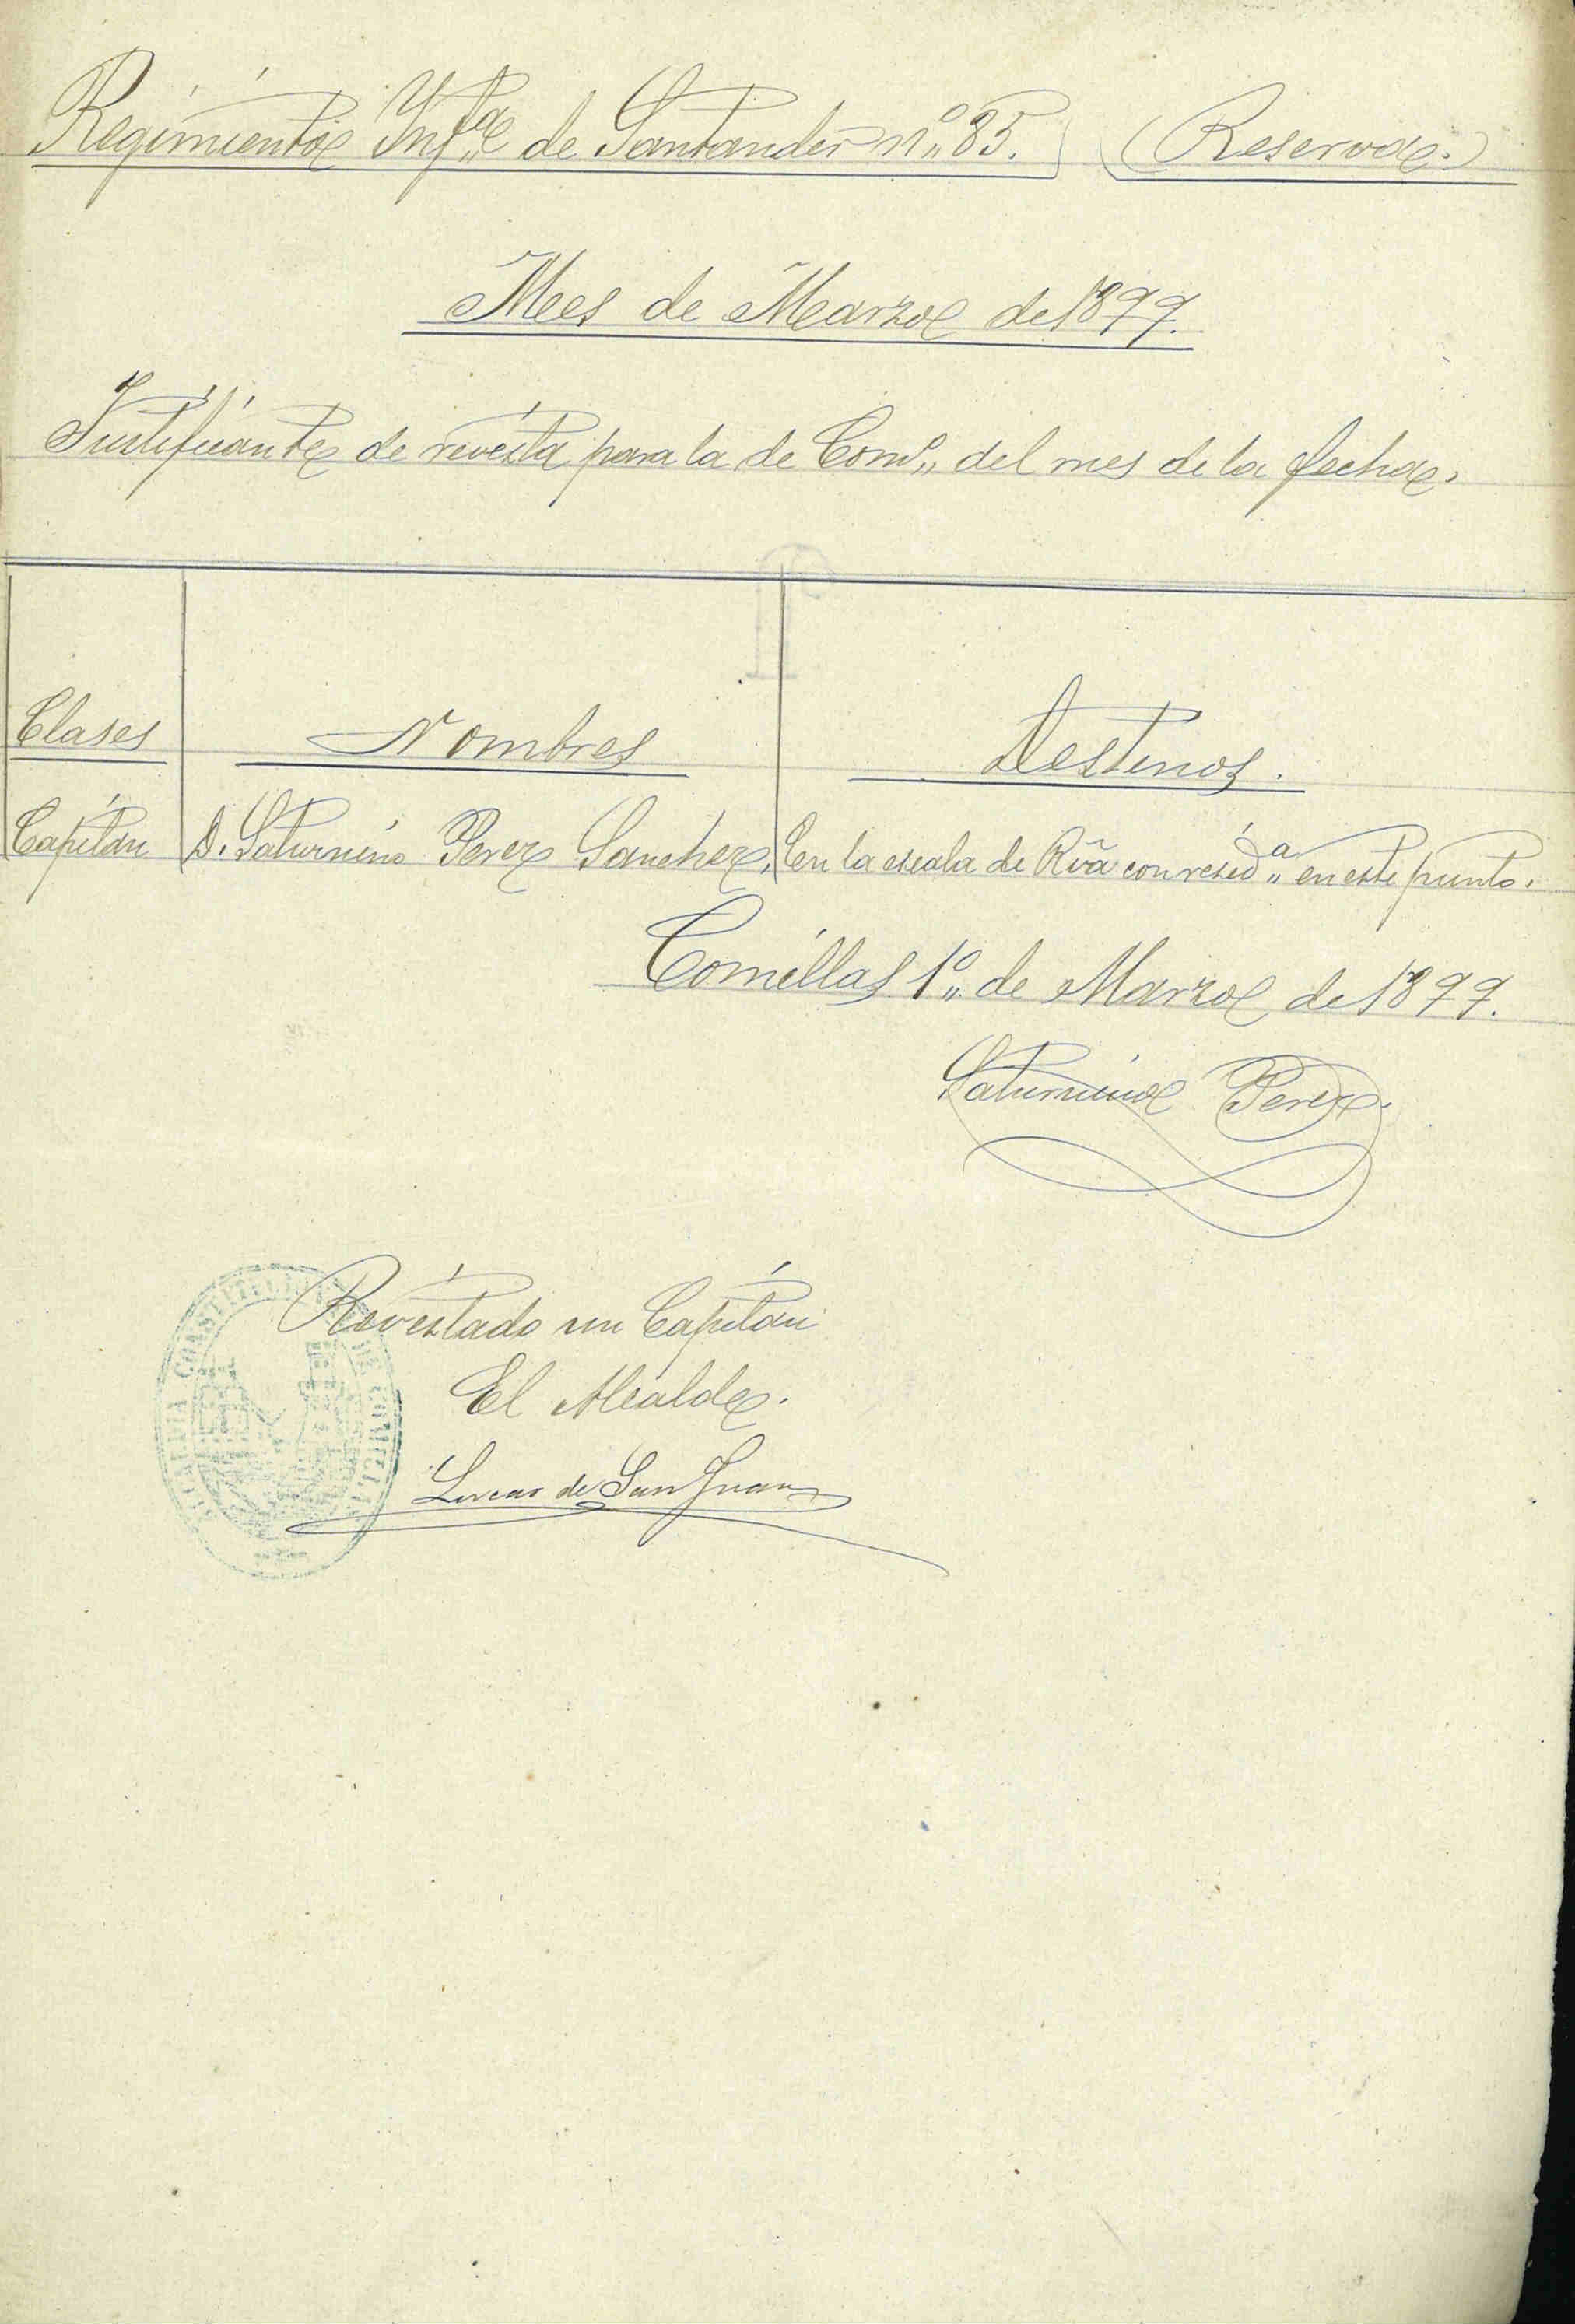 Regimiento Ynfª de Santander nº 85. (Reserva.)
Mes de Marzo de 1899.
Justificante de revista para la de Comº del mes de la fecha.
Clases Nombres Destinos.
Capitán D. Saturnino Perez Sanchez. En la escala de Rvã con residª en este punto.
Comillas 1º de Marzo de 1899.
Saturnino Perez.
Revistado un Capitán
El Alcalde.
Lucas de San Juan
ALCALDIA CONSTITUCIONAL DE COMILLAS